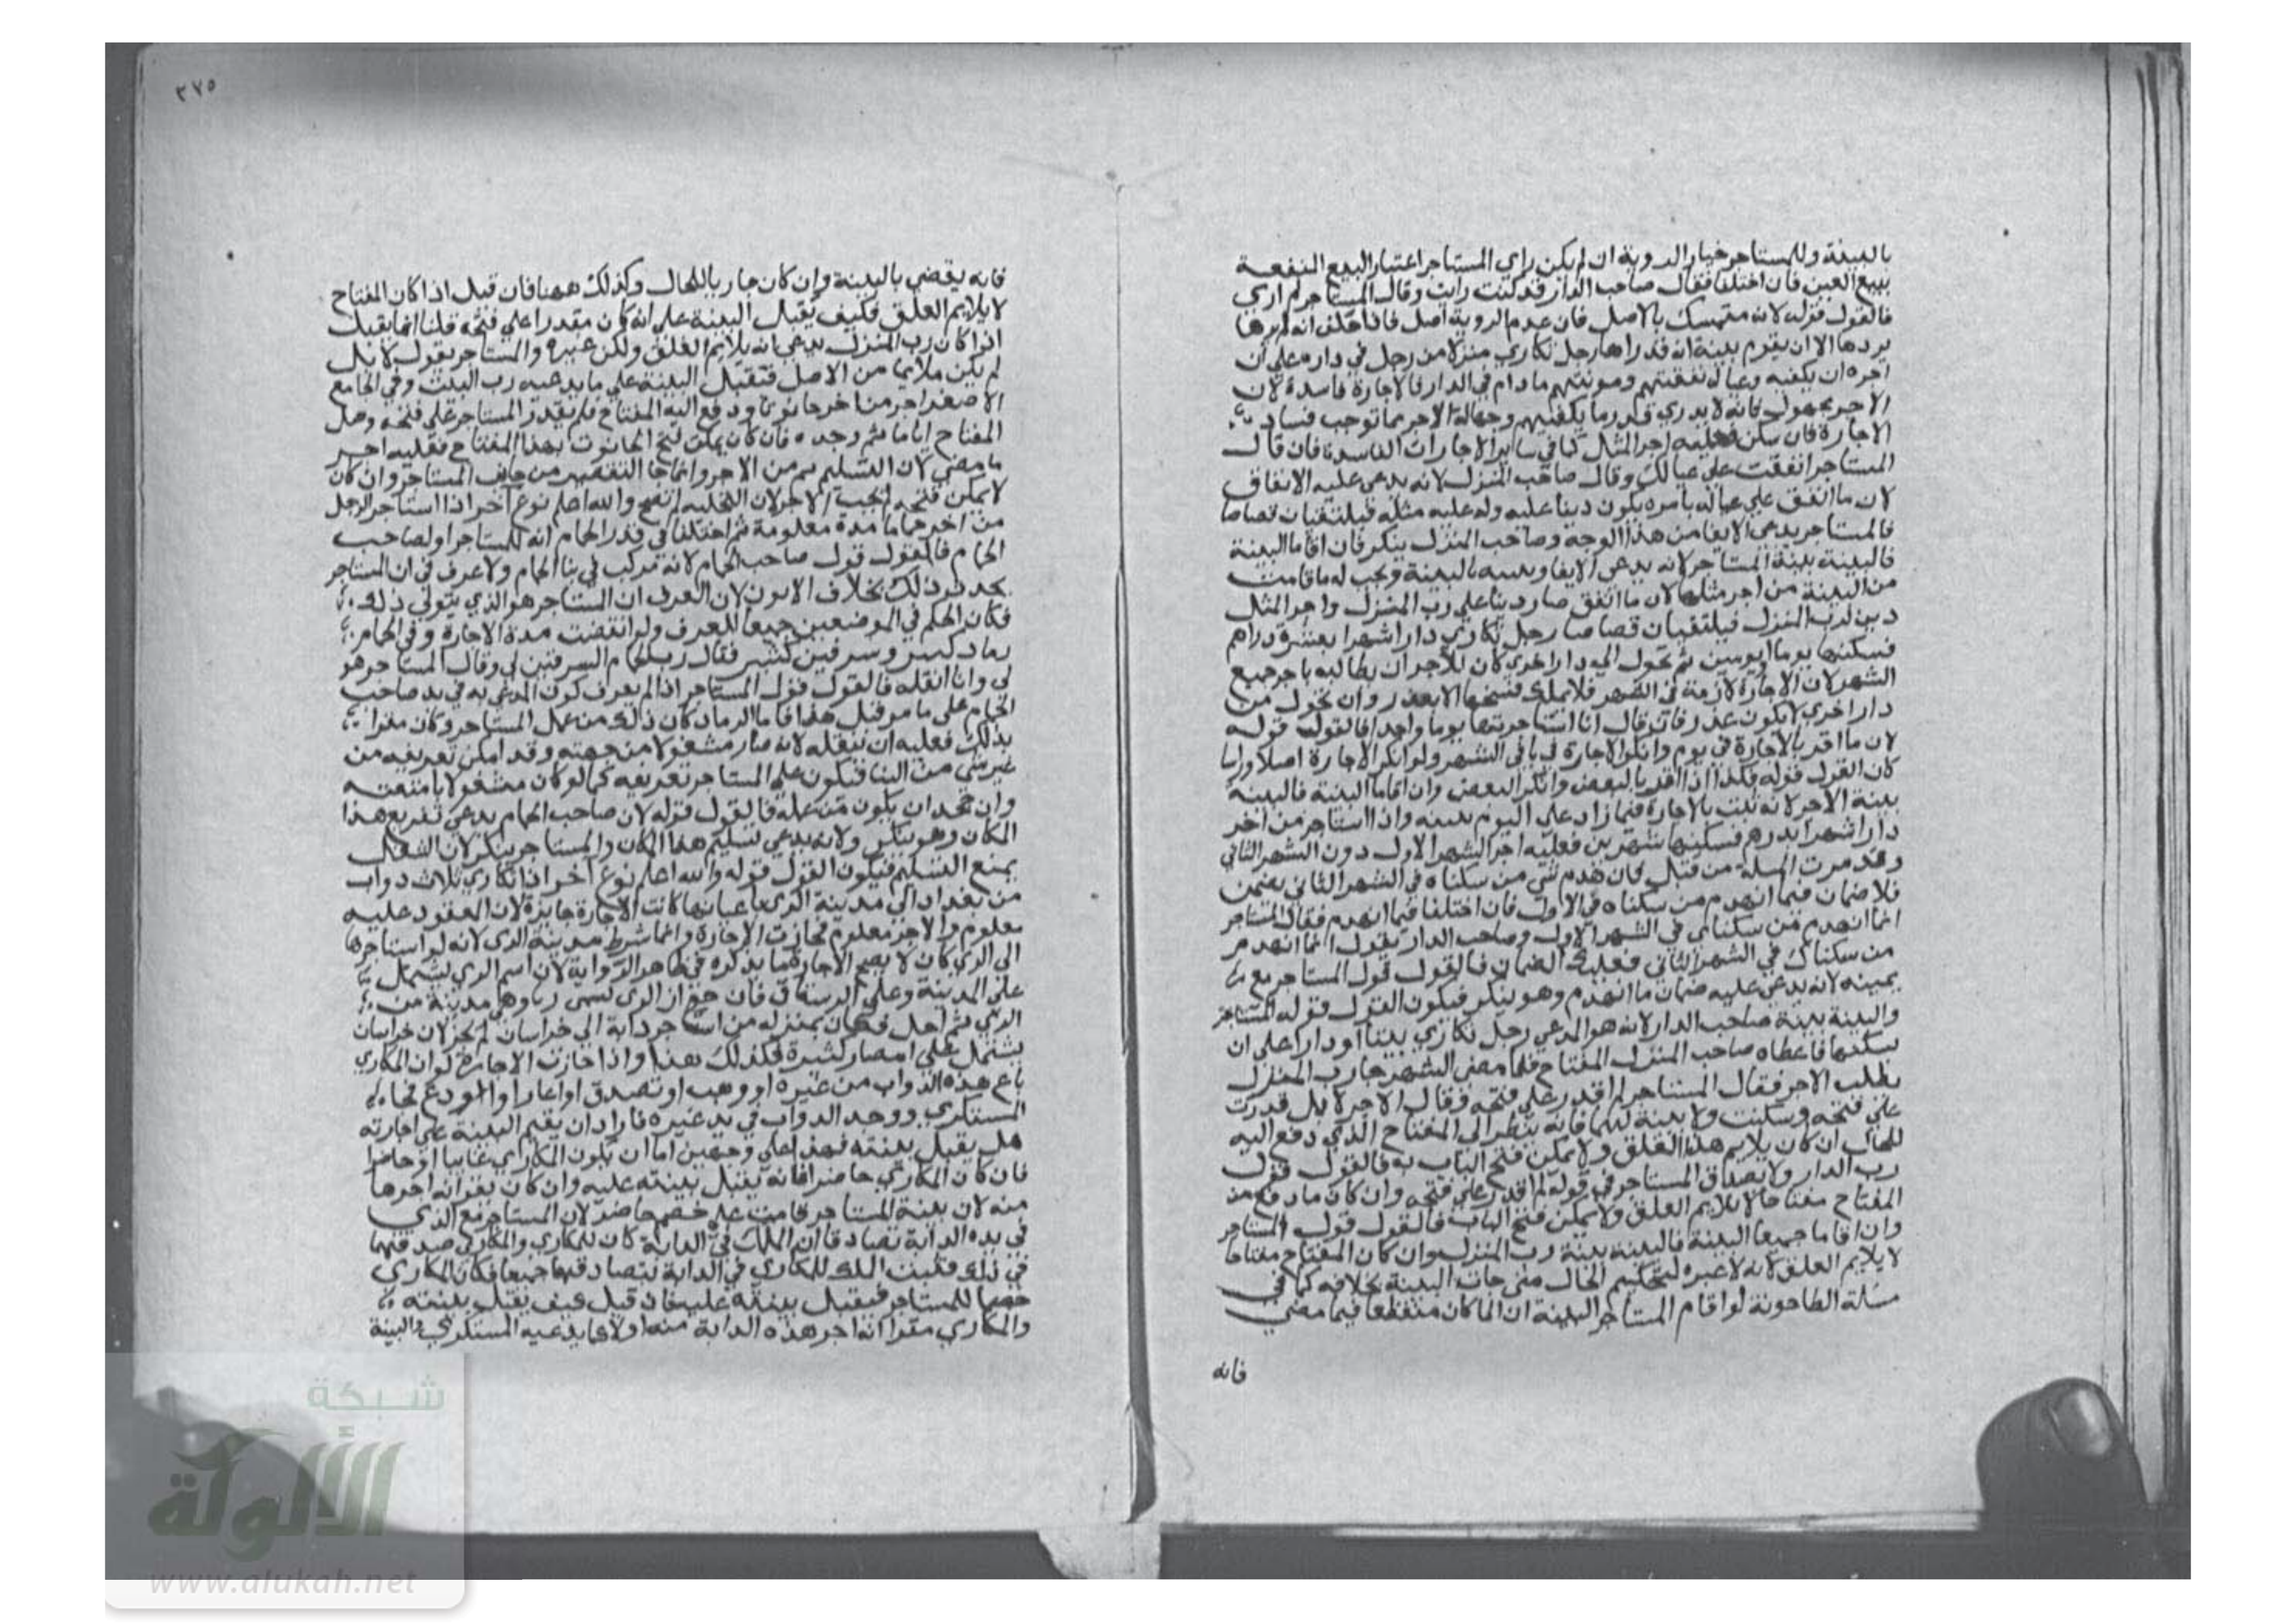 بالبينة وللمستاجر خيار الروية ان لم يكن راي المستاجر اعتبار البيع المنفعة
ببيع العين فان اختلفا فقال صاحب الدار قد كنت رايت وقال المستاجر لم اري
فالقول قوله لانه متمسك بالاصل فان عدم الروية اصل فاذا حلف انه لم يرها
يردها الا ان يقوم بينة انه قد راها رجل تكاري منزلا من رجل في داره علي ان
اجره ان يكفيه وعياله نفقتهم ومونتهم ما دام في الدار فالاجارة فاسدة لان
الاجر مجهول فانه لا يدري قدر ما يكفيهم وجهالة الاجر مما توجب فساد
الاجارة فان سكن فعليه اجر المثل كما في ساير الاجارات الفاسدة فان قال
المستاجر انفقت علي عيالك وقال صاحب المنزل لانه يدعي عليه الانفاق
لان ما انفق علي عياله بامره يكون دينا عليه وله عليه مثله فيلتقيان قصاصا
فالمستاجر يدعي الايفا من هذا الوجه وصاحب المنزل ينكر فان اقاما البينة
فالبينة بينة المستاجر لانه يدعي الايفا ويثبته بالبينة ويجب له ما قامت
من البينة من اجر مثلها لان ما انفق صار دينا علي رب المنزل واجر المثل
دين لرب المنزل فيلتقيان قصاصا رجل تكاري دارا شهرا بعشرة دراهم
فسكنها يوما او يومين ثم تحول الي دار اخري كان للاجر ان يطالبه باجر جميع
الشهر لان الاجارة لازمة في الشهر فلا يملك فسخها الا بعذر وان تحول من
دار اخري لا يكون عذرا فان قال انا استاجرتها يوما واحدا فالقول قوله
لان ما اقر بالاجارة في يوم وانكر الاجارة في باقي الشهر ولو انكر الاجارة اصلا وراسا
كان القول قوله فكذا اذا اقر بالبعض وانكر البعض وان اقاما البينة فالبينة
بينة الاجر لانه تثبت بالاجارة فيما زاد علي اليوم ببينه واذا استاجر من اخر
دارا شهرا بدرهم فسكنها شهرين فعليه اجر الشهر الاول دون الشهر الثاني
وقد مرت المسلة من قبل فان هدم شي من سكناه في الشهر الثاني يضمن
فلا ضمان فيما انهدم من سكناه في الاول فان اختلفا فيما انهدم فقال المستاجر
انما انهدم من سكناي في الشهر الاول وصاحب الدار يقول انما انهدم
من سكناك في الشهر الثاني فعليك الضمان فالقول قول المستاجر مع
يمينه لانه يدعي عليه ضمان ما انهدم وهو ينكر فيكون القول قوله المستاجر
والبينة بينة صاحب الدار لانه هو المدعي رجل تكاري بيتا او دارا علي ان
يسكنها فاعطاه صاحب المنزل المفتاح فلما مضي الشهر جا رب المنزل
يطلب الاجر فقال المستاجر لم اقدر علي فتحه وقال الاجر لا بل قدرت
علي فتحه وسكنت ولا بينة لهما فانه ينظر الي المفتاح الذي دفع اليه
للحال ان كان يلايم هذا الغلق ويمكن فتح الباب به فالقول قول
رب الدار ولا يصدق المستاجر في قوله لم اقدر علي فتحه وان كان ما دفع من
المفتاح مفتاحا لا يلايم الغلق ولا يمكن فتح الباب فالقول قول المستاجر
وان اقاما جميعا البينة فالبينة بينة رب المنزل وان كان المفتاح مفتاحا
لا يلايم الغلق لانه لا عبرة لتحكيم الحال متي جات البينة بخلافه كما في
مسلة الطاحونة لو اقام المستاجر البينة ان الما كان منقطعا فيما مضي
فانه
٣٧٥
فانه يقضي بالبينة وان كان جاريا للحال وكذلك ههنا فان قيل اذا كان المفتاح
لا يلايم الغلق فكيف يقبل البينة علي انه كان مقدرا علي فتحه قلنا انما يقبل
اذا كان رب المنزل يدعي انه يلايم الغلق ولكن غيره والمستاجر يقول لا بل
لم يكن ملايما من الاصل فتقبل البينة علي ما يدعيه رب البيت وفي الجامع
الاصغر اجر من اخر حانوتا ودفع اليه المفتاح فلم يقدر المستاجر علي فتحه وضل
المفتاح اياما ثم وجده فان كان يمكن فتح الحانوت بهذا المفتاح فعليه اجر
ما مضي لان التسليم تم من الاجر وانما جا التقصير من جانب المستاجر وان كان
لا يمكن فتحه لم يجب الاجر لان التخلية لم تصح والله اعلم نوع آخر اذا استاجر الرجل
من اخر حماما مدة معلومة ثم اختلفا في قدر الحمام انه للمستاجر او لصاحب
الحمام فالقول قول صاحب الحمام لانه مركب في بنا الحمام ولا عرف في ان المستاجر
يحدث ذلك بخلاف الاتون لان العرف ان المستاجر هو الذي يتولي ذلك
فكان الحكم في الموضعين جميعا للعرف ولو انقضت مدة الاجارة وفي الحمام
رماد كبير وسرقين كثير فقال رب الحمام السرقين لي وقال المستاجر هو
لي وانا انقله فالقول قول المستاجر اذا لم يعرف كون المدعي به في يد صاحب
الحمام علي ما مر قبل هذا فاما الرماد كان ذلك من عمل المستاجر وكان مقرا
بذلك فعليه ان ينقله لانه صار مشغولا من جهته وقد امكن تفريغه من
غير شي من البنا فيكون علي المستاجر تفريغه كما لو كان مشغولا بامتعته
وان جحد ان يكون من عمله فالقول قوله لان صاحب الحمام يدعي تفريغ هذا
المكان وهو ينكر ولانه يدعي تسليم هذا المكان والمستاجر ينكر لان الشغل
يمنع التسليم فيكون القول قوله والله اعلم نوع آخر اذا تكاري ثلاث دواب
من بغداد الي مدينة الري باعيانها كانت الاجارة جايزة لان المعقود عليه
معلوم والاجر معلوم فجازت الاجارة وانما شرط مدينة الري لانه لو استاجرها
الي الري كان لا يصح الاجارة فيما يذكره في ظاهر الرواية لان اسم الري يشتمل
علي المدينة وعلي الرستاق فان
الري ثم احل فكان بمنزله من استاجر دابة الي خراسان لم يجز لان خراسان
يشتمل علي امصار كثيرة فكذلك هذا واذا جازت الاجارة لو ان المكاري
باع هذه الدواب من غيره او وهب او تصدق او اعار او اودع فجا
المستكري ووجد الدواب في يد غيره فاراد ان يقيم البينة علي اجارته
هل يقبل بينته فهذا علي وجهين اما ان يكون المكاري غايبا او حاضرا
فان كان المكاري حاضرا فانه يقبل بينته عليه وان كان يقر انه اجرها
منه لان بينة المستاجر قامت علي خصم حاضر لان المستاجر مع الذي
في يده الدابة تصادقا ان الملك في الدابة كان للمكاري والمكاري صدقهما
في ذلك فثبت الملك للمكاري في الدابة بتصادقهما جميعا فكان المكاري
خصما للمستاجر فيقبل بينته عليه فان قيل كيف يقبل بينته
والمكاري مقرا انه اجر هذه الدابة منه اولا يدعيه المستكري والبينة
شبكة
الألوكة
www.alukah.net